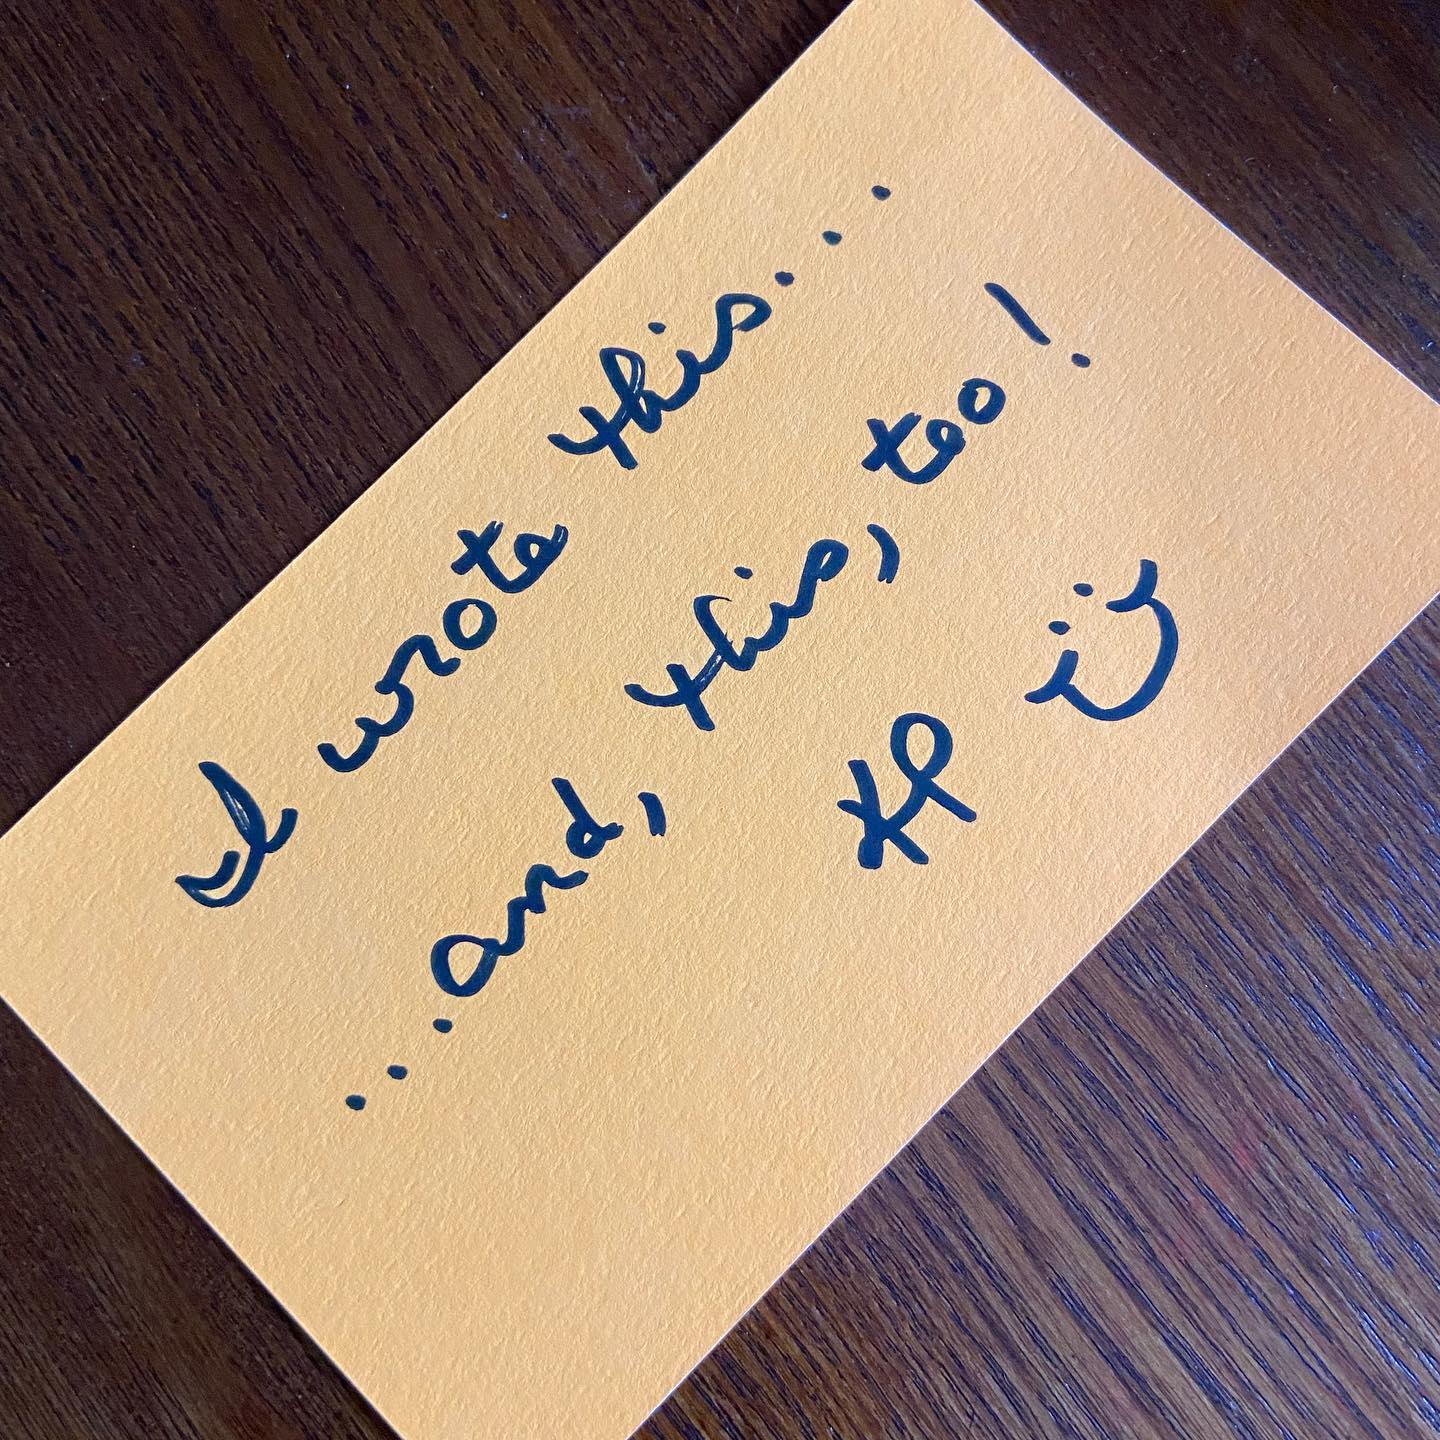 I wrote this...
...and, this, too!
KP